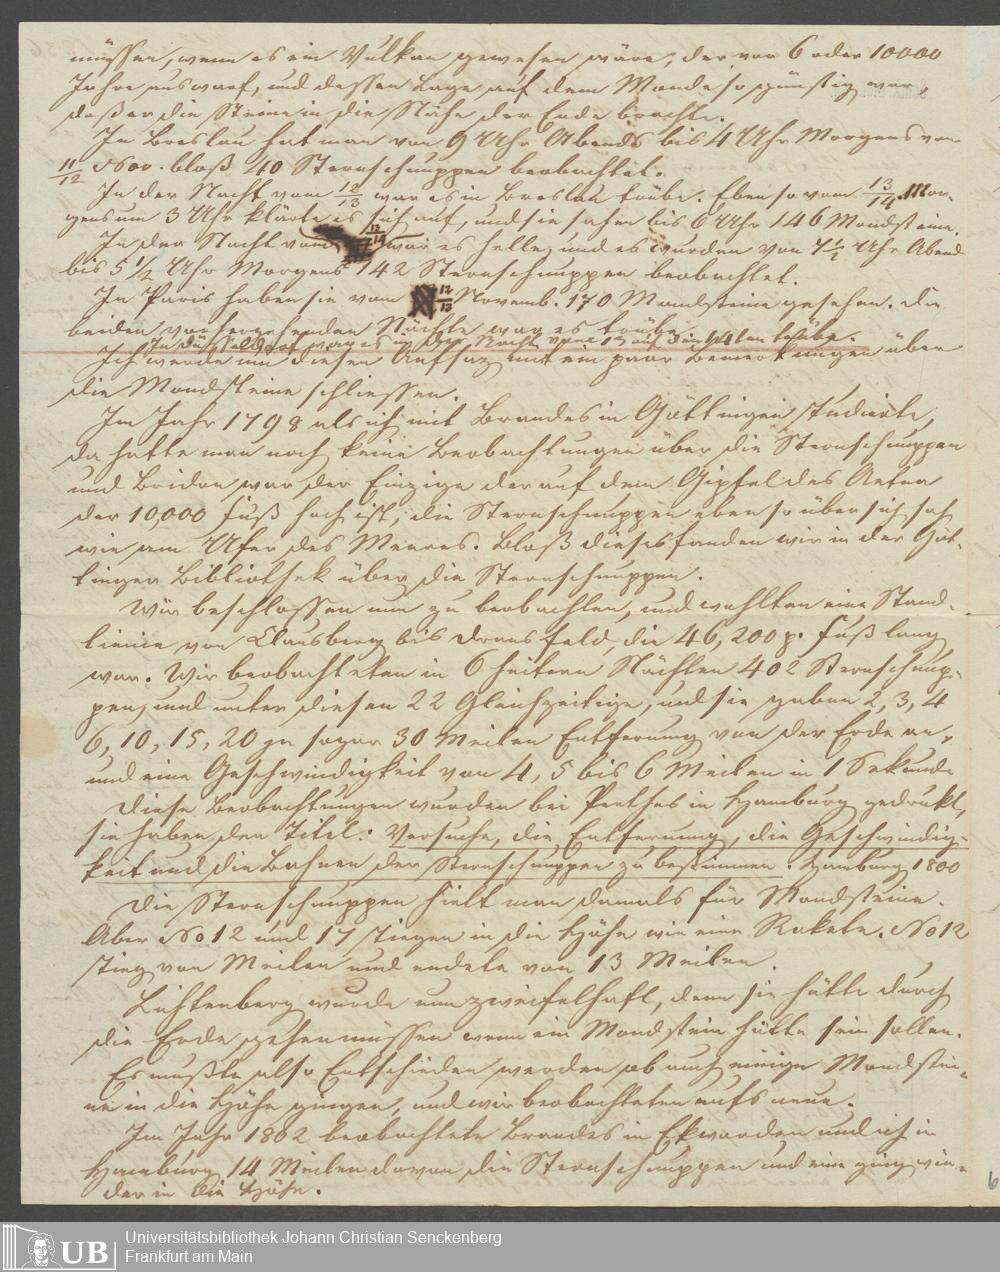 müssen, wenn es ein Vulkan gewesen wäre, der vor 6 oder 10000
Jahre auswarf, und dessen Lage auf dem Monde so günstig war,
daß er die Steine in die Nähe der Erde brachte.
In Breslau hat man von 9 Uhr Abends bis 4 Uhr Morgens vom
11/12 Nov. bloß 40 Sternschnuppen beobachtet.
In der Nacht vom 12/13 war es in Breslau trübe. Ebenso vom 13/14. Mor-
gens um 3 Uhr klärte es sich auf, und sie sahen bis 6 Uhr 146 Mondsteine.
In der Nacht vom war es helle, und es wurden von 7 1/2 Uhr Abend
bis 5 1/2 Uhr Morgens 142 Sternschnuppen beobachtet.
In Paris haben sie vom 12/13 Novemb. 170 Mondsteine gesehen. Die
beiden vorhergehenden Nächte war es trübe.
In Düsseldorf war es in der Nacht vom 13 auf den 14ten trübe.
Ich werde nun diesen Aufsaz mit ein paar Bemerkungen über
die Mondsteine schliessen.
Im Jahr 1798 als ich mit Brandes in Göttingen studierte,
da hatte man noch keine Beobachtungen über die Sternschnuppen
und Bridon war der Einzige der auf dem Gipfel des Aetna
der 10,000 Fuß hoch ist, die Sternschnuppen eben so über sich sah
wie am Ufer des Meeres. Bloß dieses fanden wir in der Göt-
tinger Bibliothek über die Sternschnuppen.
Wir beschlossen nun zu beobachten, und wählten eine Stand-
linie von Clausberg bis Dransfeld, die 46,200 p. Fuß lang
war. Wir beobachteten in 6 heitern Nächten 402 Sternschnup-
pen, und unter diesen 22 Gleichzeitige, und sie gaben 2, 3, 4
6, 10, 15, 20 ja sogar 30 Meilen Entfernung von der Erde an,
und eine Geschwindigkeit von 4, 5 bis 6 Meilen in 1 Sekunde
Diese Beobachtungen wurden bei Perthes in Hamburg gedrukt,
sie haben den Titel: Versuche, die Entfernung, die Geschwindig-
keit und die Bahnen der Sternschnuppen zu bestimmen. Hamburg 1800
Die Sternschnuppen hielt man damals für Mondsteine.
Aber No 12 und 17 stiegen in die Höhe wie eine Rakete. No 12
stieg von Meilen und endete von 13 Meilen.
Lichtenberg wurde nun zweifelhaft, denn sie hätte durch
die Erde gehen müssen wenn ein Mondstein hätte sein sollen.
Es mußte also Entschieden werden ob auch einige Mondstei-
ne in die Höhe gingen, und wir beobachteten aufs neue.
Im Jahr 1802 beobachtete Brandes in Ekwarden und ich in
Hamburg 14 Meilen davon die Sternschnuppen und eine ging wie-
der in die Höhe.
6
UB
Universitätsbibliothek Johann Christian Senckenberg
Frankfurt am Main